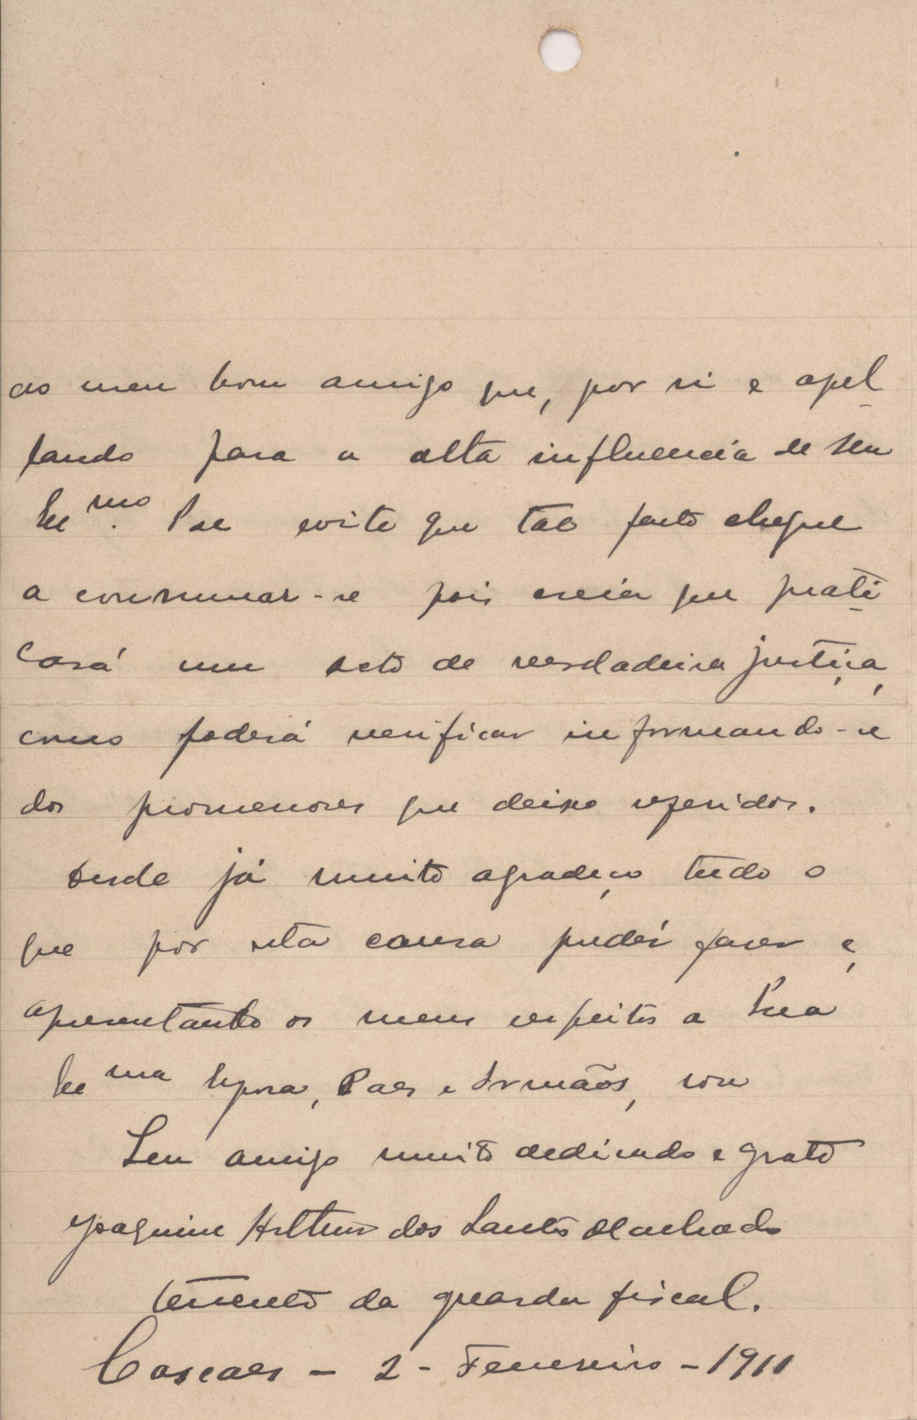 ao meu bom amigo que, por si e apel
lando para a alta influencia de seu
Ex.mo Pae evite que tal facto chegue
a consummar-se pois creia que prati
cará um acto de verdadeira justiça,
como poderá verificar informando-se
dos promenores que deixo referidos.
Desde já muito agradeço tudo o
que por esta causa poder fazer e,
apresentando os meus respeitos a Sua
Ex.ma Espora, Paes e Irmãos, sou
Seu amigo muito dedicado e grato
Joaquim Arthur dos Santos Machado
tenente da guarda fiscal.
Cascaes - 2 - Fevereiro - 1911